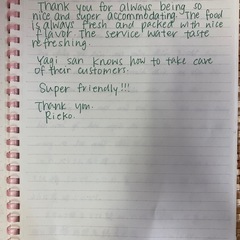 Thank you for always being so
nice and super accommodating. The food
is always fresh and packed with nice
flavor. The service water taste
refreshing.
Yagi san knows how to take care
of their customers.
Super friendly!!!
Thank ym.
Rieko.